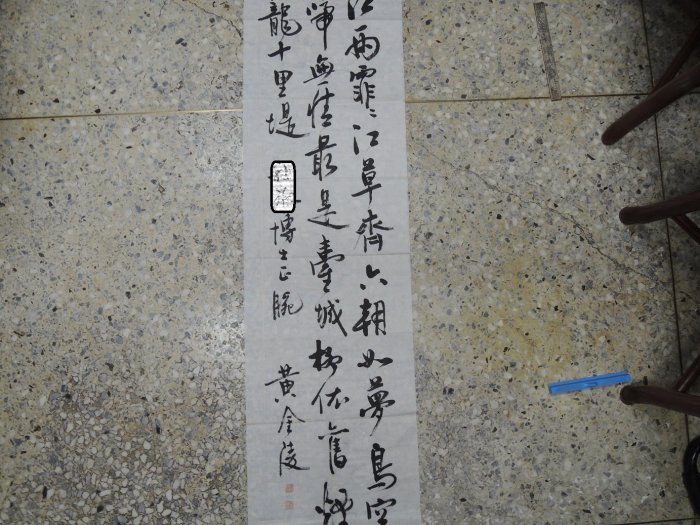 江雨霏霏江草齊六朝如夢鳥空
啼無情最是臺城柳依舊煙
龍十里堤 博士正腕 黃金陵